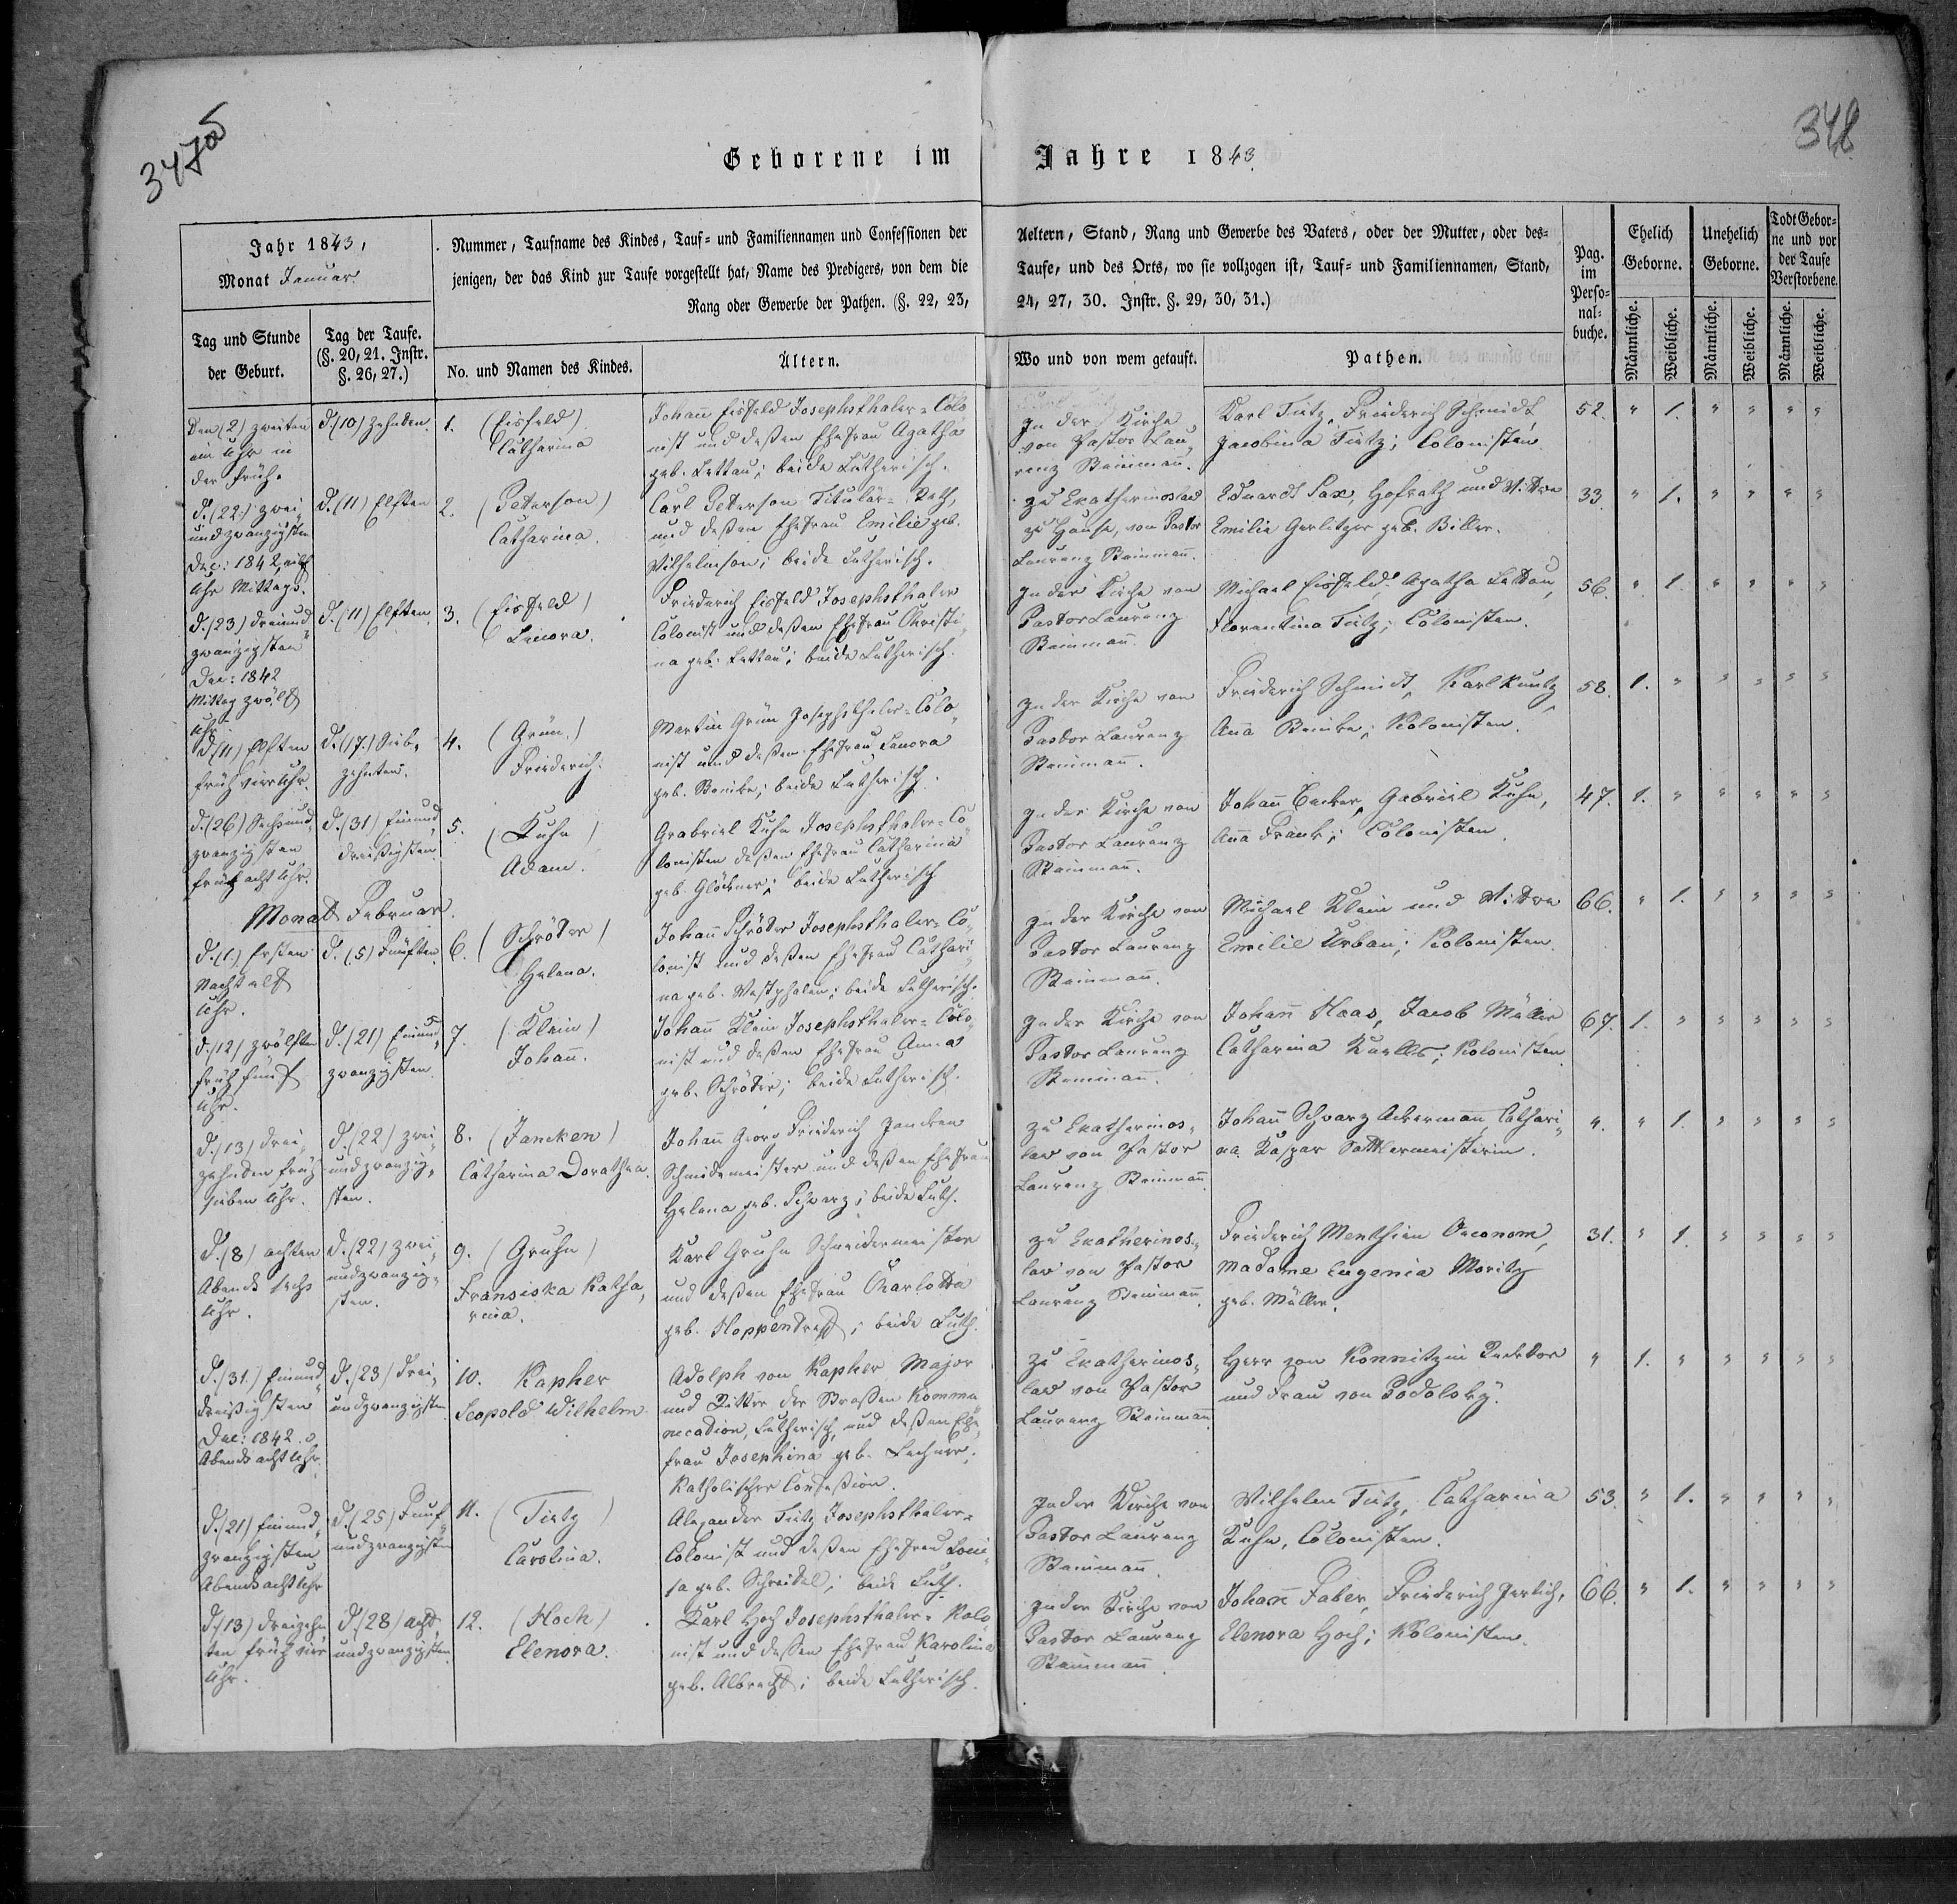 347a
348
Geborene im Jahre 1843.
Jahr 1843,
Monat Januar.
Nummer, Taufname des Kindes, Tauf- und Familiennamen und Confessionen der Aeltern, Stand, Rang und Gewerbe des Vaters, oder der Mutter, oder des-
jenigen, der das Kind zur Taufe vorgestellt hat, Name des Predigers, von dem die Taufe, und des Orts, wo sie vollzogen ist, Tauf- und Familiennamen, Stand,
Rang oder Gewerbe der Pathen. (§. 22, 23, 24, 27, 30. Instr. §. 29, 30, 31.)
Pag.
im
Perso-
nal-
buche.
Ehelich
Geborne.
Unehelich
Geborne.
Todt Gebor-
ne und vor
der Taufe
Verstorbene.
Tag und Stunde
der Geburt.
Tag der Taufe.
(§. 20, 21. Instr.
§. 26, 27.)
No. und Namen des Kindes.
Ältern.
Wo und von wem getauft.
Pathen.
Männliche.
Weibliche.
Männliche.
Weibliche.
Männliche.
Weibliche.
Den (2) zweiten
ein Uhr in
der Früh.
d. (10) Zehnden.
1. (Eisfeld)
Catharina
Johan Eisfeld Josephsthaler-Colo
nist und deßen Ehefrau Agatha
geb. Lettau; beide Lutherisch.
In der Kirche
von Pastor Lau
renz Steinmañ.
Karl Tietz, Friederich Schmidt,
Jacobina Tietz; Colonisten
52. " 1. " " " "
d. (22.) zwei
undzwanzigsten
Dec: 1842,
Uhr Mittags.
d. (11) Elften
2. (Peterson)
Catharina.
Carl Peterson Titulär-Rath,
und deßen Ehefrau Emilie geb.
Wilhelmson; beide Lutherisch.
zu Ekatherinoslaw
zu Hause, von Pastor
Laurenz Steinmañ.
Eduardt Sax, Hofrath und Wittwe
Emilie Gerlitzer geb. Biller.
33 " 1. " " " "
d. (23) dreiund
zwanzigsten
Dec: 1842
Mittag zwölf
Uhr.
d. (11) Elften.
3. (Eisfeld)
Lenora.
Friederich Eisfeld Josephsthaler
Colonist und deßen Ehefrau Christi
na geb. Lettau; beide Lutherisch.
In der Kirche von
Pastor Laurenz
Steinmañ.
Michael Eisfeld, Agatha Lettau,
Florentina Tietz; Colonisten.
56. " 1. " " " "
d. (11) Elften
früh vier Uhr.
d. (17.) Sieb-
zehnten.
4. (Grün.)
Friederich.
Martin Grün Josephsthaler-Colo
nist und deßen Ehefrau Lenora
geb. Beinke; beide Lutherisch.
In der Kirche von
Pastor Laurenz
Steinmañ.
Friederich Schmidt, Karl Kuntz,
Aña Beinke; Kolonisten.
58. 1. " " " " "
d. (26) Sechsund
zwanzigsten
früh acht Uhr.
d. (31) Einund
dreißigsten
5. (Kuhn)
Adam.
Grabriel Kuhn Josephsthaler-Co
lonisten deßen Ehefrau Catharina
geb. Glöckner; beide Lutherisch
In der Kirche von
Pastor Laurenz
Steinmañ.
Johañ Becker, Gabriel Kuhn,
Aña Frank; Colonisten.
47. 1. " " " " "
Monat Februar.
d. (1.) Ersten
Nacht elf
Uhr.
d. (5) Fünften
6. (Schröder)
Helena.
Johañ Schröder Josephsthaler-Co
lonist und deßen Ehefrau Cathari
na geb. Westphalen; beide Lutherisch.
In der Kirche von
Pastor Laurenz
Steinmañ.
Michael Klein und Wittwe
Emilie Urban; Kolonisten.
66. " 1. " " " "
d. (12) zwölften
früh fünf
Uhr.
d. (21) Einund
zwanzigsten.
7. (Klein)
Johañ.
Johañ Klein Josephsthaler-Colo
nist und deßen Ehefrau Anna
geb. Schröder; beide Lutherisch.
In der Kirche von
Pastor Laurenz
Steinmañ.
Johañ Haas, Jacob Müller
Catharina; Kolonisten
67. 1. " " " " "
d. (13) drei
zehnden früh
sieben Uhr.
d. (22) zwei
undzwanzig
sten.
8. (Jancken)
Catharina Dorathea.
Johañ Georg Friederich Jancken
Schmidemeister und deßen Ehefrau
Helena geb. Schwarz; beide Luth.
zu Ekatherinos
law von Pastor
Laurenz Steinmañ.
Johañ Schwarz Ackermañ, Cathari
na Kaspar Sattlermeisterin.
". " 1. " " " "
d. (8) achten
Abends sechs
Uhr.
d. (22) zwei
undzwanzig
sten.
9. (Gruhn)
Fransiska Katha
rina.
Karl Gruhn Schneidermeister
und deßen Ehefrau Charlotta
geb. Hoppendref; beide Luth.
zu Ekatherinos
law von Pastor
Laurenz Steinmañ.
Friederich Menthien Oeconom,
Madame Eugenia Moritz
geb. Müller.
31. " 1. " " " "
d. (31.) Einund
dreißigsten
Dec: 1842.
Abends acht Uhr.
d. (23) drei
undzwanzigsten
10. Kapher
Leopold Wilhelm
Adolph von Kapher Major
und Ritter der Straßen Kommu
nication, Lutherisch, und deßen Ehe
frau Josephina geb. Lechner;
Katholischer Confeßion.
zu Ekatherinos
law von Pastor
Laurenz Steinmañ
Herr von Konnitzin
und Frau von Podolsky.
" 1. " " " " "
d. (21) Einund
zwanzigsten
Abends acht Uhr
d. (25) Fünf
undzwanzigsten
11. (Tietz)
Carolina.
Alexander Tietz Josephsthaler-
Colonist und deßen Ehefrau Loui
sa geb. Schreidel; beide Luth.
In der Kirche von
Pastor Laurenz
Steinmañ.
Wilhelm Tietz, Catharina
Kuhn, Colonisten.
53. " 1. " " " "
d. (13) dreizehn
ten früh vier
Uhr.
d. (28) acht
undzwanzigsten
12. (Hoch)
Elenora.
Karl Hoch Josephsthaler-Kolo
nist und deßen Ehefrau Karolina
geb. Albrecht; beide Lutherisch.
In der Kirche von
Pastor Laurenz
Steinmañ.
Johañ Faber, Friederich Gerlich,
Elenora Hoch; Kolonisten.
66. " 1. " " " "